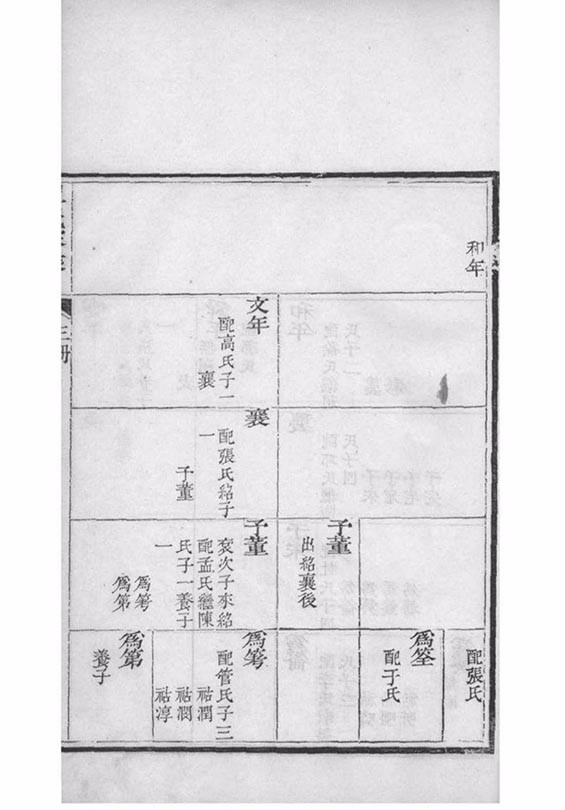 和年
文年
配高氏子一
襄
襄
配張氏紹子
一
子董
子董
出紹襄後
子董
次子來紹
配孟氏繼陳
氏子一養子
一
爲
爲第
配張氏
爲筌
配于氏
爲
配管氏子三
祜潤
祜潤
祜淳
爲第
養子
三册